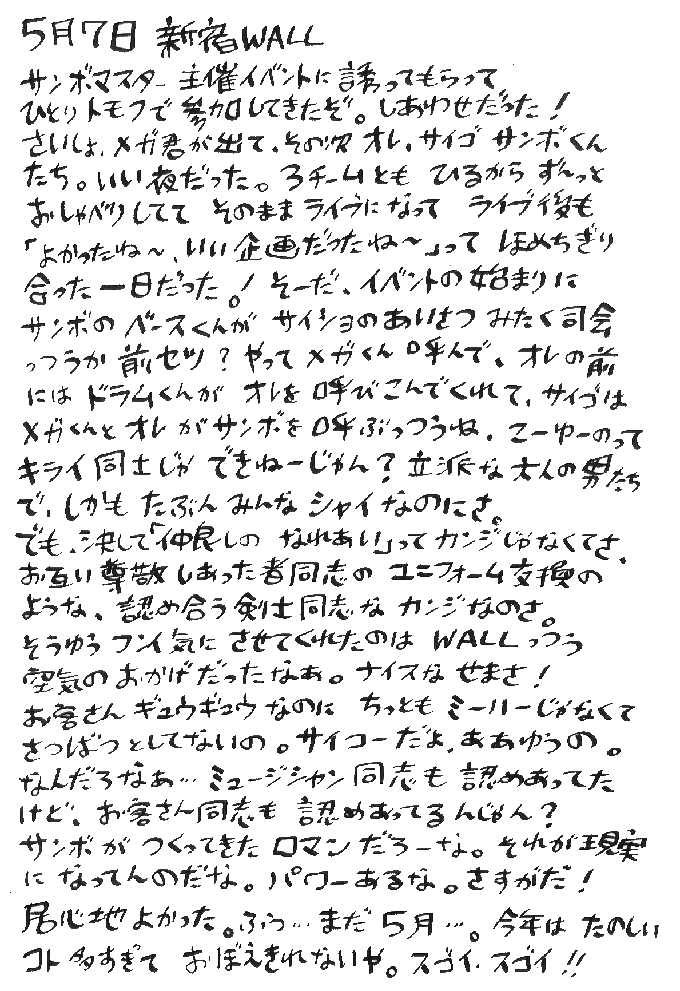 5月7日 新宿WALL
サンボマスター主催イベントに誘ってもらって
ひとりトモフで参加してきたぞ。しあわせだった!
さいしょ、メガ君が出て、その次オレ、サイゴ サンボくん
たち。いい夜だった。3チームとも ひるから ずんっと
おしゃべりしてて そのままライヴになって ライブ後も
「よかったね〜、いい企画だったね〜」って ほめちぎり
合った一日だった。! そーだ、イベントの始まりに
サンボの ベースくんが サイショのあいさつ みたく司会
っつうか 前セツ?やって メガくん呼んで、オレの前
には ドラムくんが オレを 呼びこんでくれて、サイゴは
メガくんと オレ がサンボを 呼ぶっつうね、こーゆーのって
キライ同士じゃ できねーじゃん?立派な大人の男たち
で、しかも たぶん みんな シャイなのにさ。
でも、決して「仲良しの なれあい」って カンジじゃなくてさ、
お互い尊敬しあった者同志の ユニフォーム交換の
ような、認め合う剣士同志な カンジなのさ。
そうゆうフンイ気に させてくれたのは WALLっつう
空気の おかげだったなぁ。ナイスな せまさ!
お客さん ギュウギュウなのに ちっとも ミーハーじゃなくて
さつばつとしてないの。サイコーだよ、ああゆうの。
なんだろなぁ… ミュージシャン同志も 認めあってた
けど、お客さん同志も 認めあってるんじゃん?
サンボが つくってきた ロマン だろーな。それが現実
に なってんのだな。パワーあるな。さすがだ!
居心地よかった。ふぅ…まだ 5月…。今年は たのしい
コト多すぎて おぼえきれないや。スゴイ、スゴイ!!